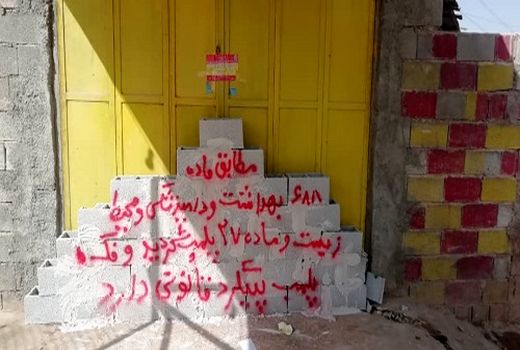 مطابق ماده
۶۸۸ بهداشت و دامپزشکی و محیط
زیست و ماده ۲۷ پلمپ گردید و فک
پلمپ پیگرد قانونی دارد